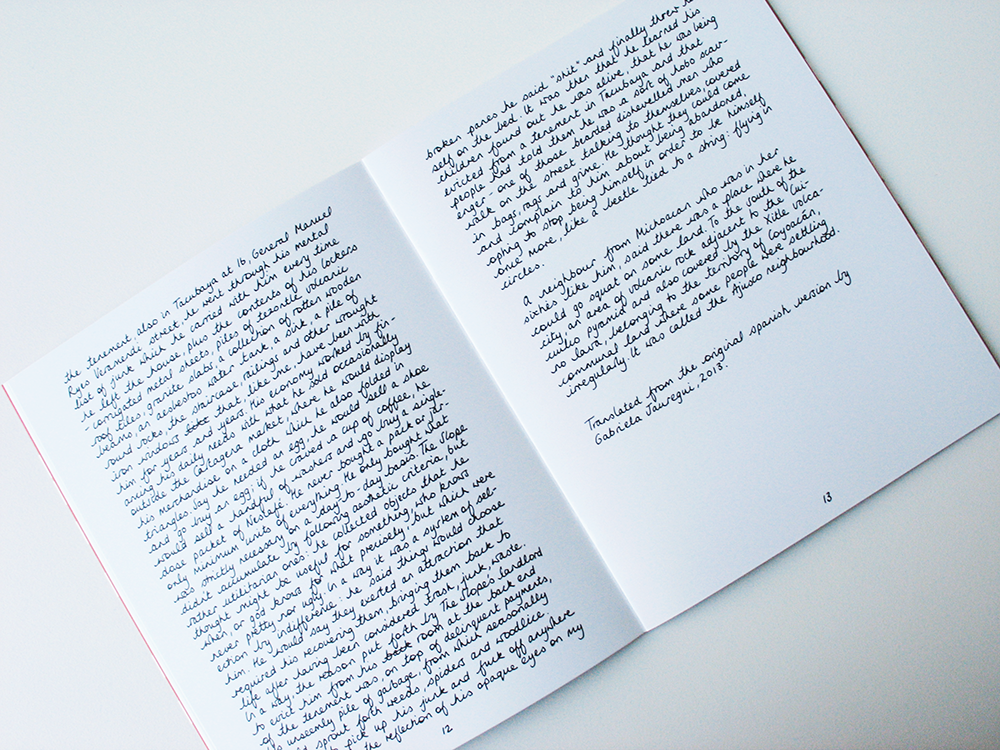 the tenement, also in Tacubaya at 16, General Manuel
Ryes Veramendi street, he went through his mental
list of junk which he carried with him every time
he left the house, plus the contents of his lockers
- corrugated metal sheets, piles of tezontle volcanic
roof tiles, granite slabs, a collection of rotten wooden
beams, an aesbestos water tank, a sink, a pile of
round rocks, the staircase, railings and other wrought
iron windows that, like me, have been with
him for years and years. His economy worked by fin-
ancing his daily needs with what he sold occasionally
outside the Cartagena market, where he would display
his merchandise on a cloth which he also folded in
triangles. Say he needed an egg, he would sell a shoe
and go buy an egg; if he craved a cup of coffee, he
would sell a handful of washers and go buy a single-
dose packet of Nescafé. He never bought a pack or jar,
only minimum units of everything. He only bought what
was strictly necessary on a day-to-day basis. The Slope
didn't accumulate by following aesthetic criteria, but
rather utilitarian ones: he collected objects that he
thought might be useful for something, who knows
when, or god knows for what precisely, but which were
never pretty nor ugly. In a way it was a system of sel-
ection by indifference: he said things would choose
him. He would say they exerted an attraction that
required his recovering them, bringing them back to
life after having been considered trash, junk, waste.
In a way, the reason put forth by The Slope's landlord
to evict him from his room at the back end
of the tenement was, on top of delinquent payments,
his unseemly pile of garbage, from which seasonally
would sprout forth weeds, spiders and woodlice.
to pick up his junk and fuck off anywhere
the reflection of his opaque eyes on my
12
broken panes he said "shit" and finally threw
self on the bed. It was then that he learned his
children found out he was alive, that he was being
evicted from a tenement in Tacubaya and that
people had told them he was a sort of hobo scav-
enger - one of those bearded dishevelled men who
walk on the street talking to themselves, covered
in bags, rags and grime. He thought they could come
and complain to him about being abandoned,
oping to stop being himself in order to be himself
once more, like a beetle tied to a string: flying in
circles.
A neighbour from Michoacan who was in her
sixties like him, said there was a place where he
could go squat on some land. To the south of the
city, an area of volcanic rock adjacent to the Cui-
cuilco pyramid and also covered by the Xitle volca-
no lava, belonging to the territory of Coyoacán,
communal land where some people were settling
irregularly. It was called the Ajusco neighbourhood.
Translated from the original spanish version by
Gabriela Jauregui, 2013.
13